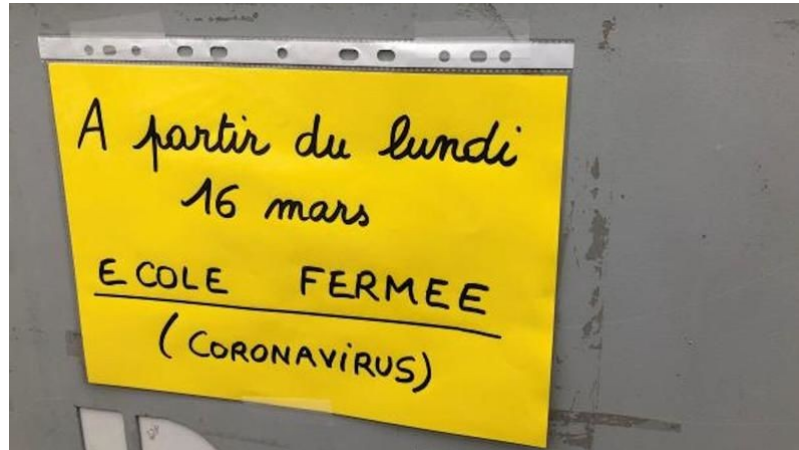 A partir du lundi
16 mars
ECOLE FERMEE
(CORONAVIRUS)